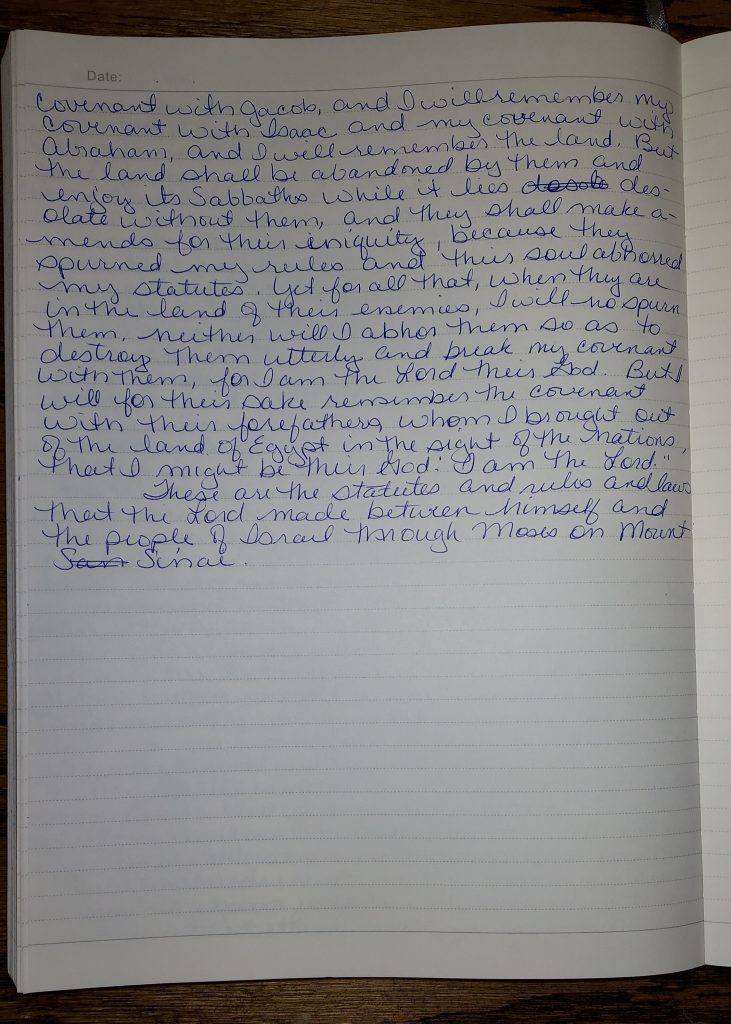 Date:
covenant with Jacob, and I will remember my
covenant with Isaac and my covenant with
Abraham, and I will remember the land. But
the land shall be abandoned by them and
enjoy its Sabbaths while it lies desola des-
olate without them, and they shall make a-
mends for their iniquity, because they
spurned my rules and their soul abhorred
my statutes. Yet for all that, when they are
in the land of their enemies, I will no spurn
them, neither will I abhor them so as to
destroy them utterly and break my covenant
with them, for I am the Lord their God. But I
will for their sake remember the covenant
with their forefathers, whom I brought out
of the land of Egypt in the sight of the nations,
that I might be their God: I am the Lord."
These are the statutes and rules and laws
that the Lord made between himself and
the people of Israel through Moses on Mount
San Sinai.